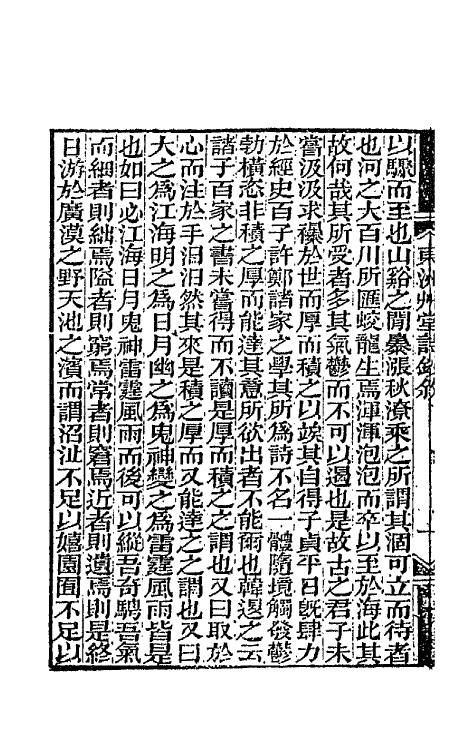 以驟而至也山谿之閒暴漲秋潦乘之所謂其涸可立而待者
也河之大百川所匯蛟龍生焉渾渾泡泡而卒以至於海此其
故何哉其所受者多其氣鬱而不可以遏也是故古之君子未
嘗汲汲求襮於世而厚而積之以竢其自得子貞平日旣肆力
於經史百子許鄭諸家之學其所爲詩不名一體隨境觸發鬱
勃橫恣非積之厚而能達其意所欲出者不能爾也韓退之云
諸子百家之書未嘗得而不讀是厚而積之之謂也又曰取於
心而注於手汩汩然其來是積之厚而又能達之之謂也又曰
大之爲江海明之爲日月幽之爲鬼神變之爲雷霆風雨皆是
也如曰必江海日月鬼神雷霆風雨而後可以縱吾奇騁吾氣
而細者則絀焉隘者則窮焉常者則窘焉近者則遺焉則是終
日游於廣漠之野天池之濱而謂沼沚不足以嬉園囿不足以
東洲艸堂詩鈔敘